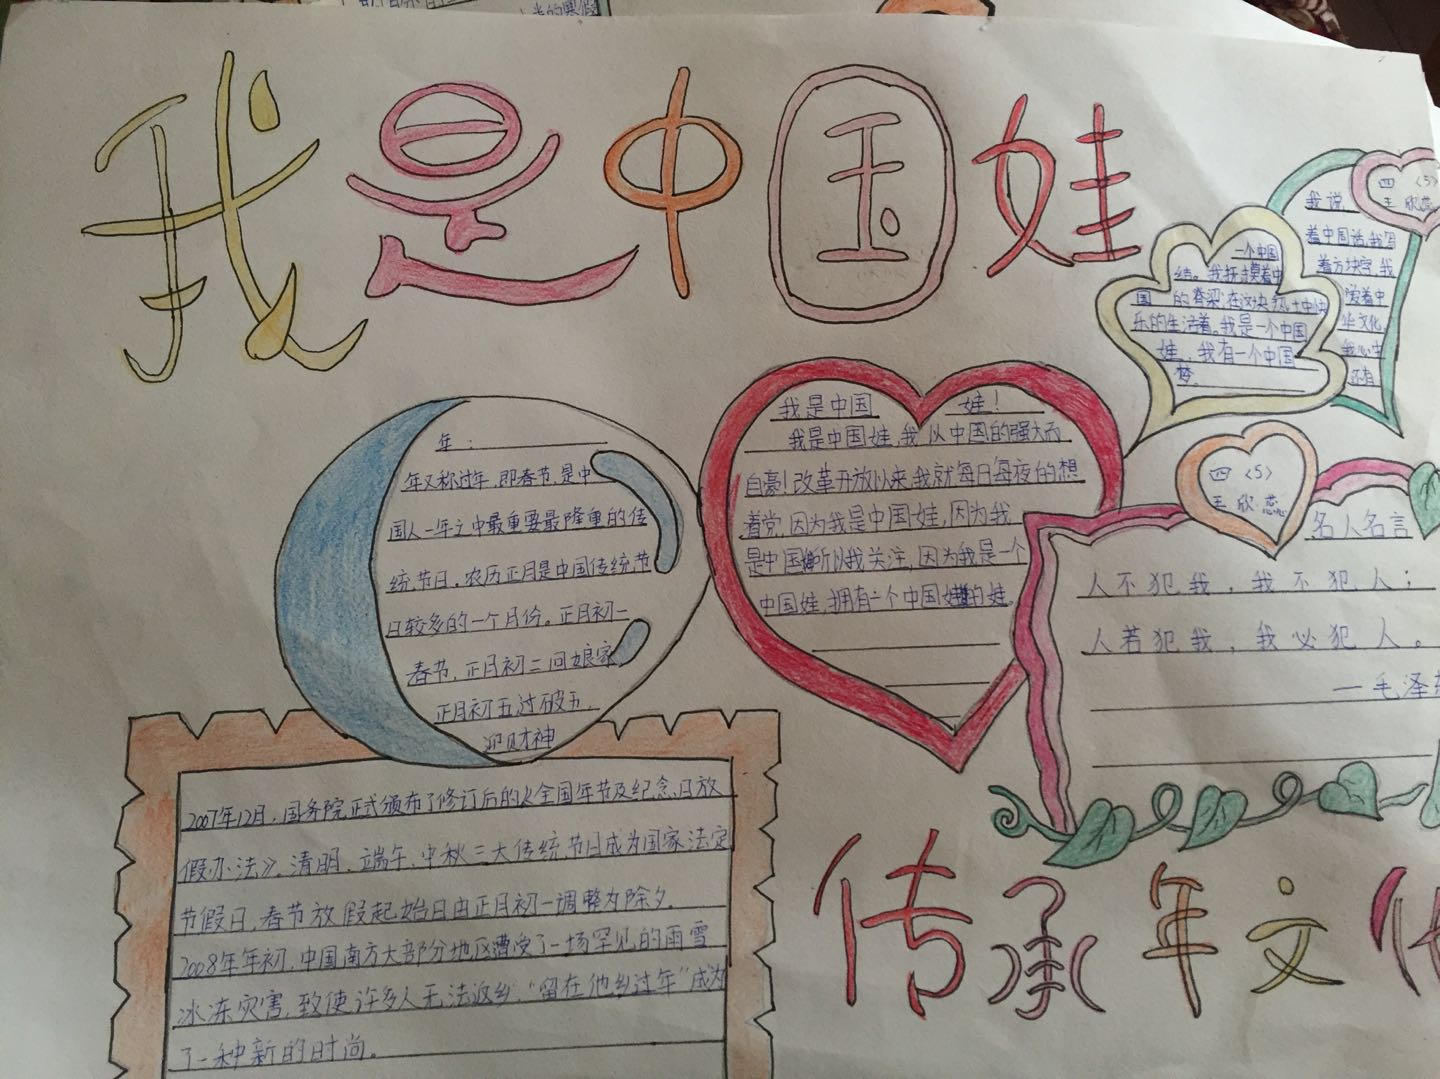 我是中国娃
四〈5〉
王欣蕊
我说
着中国话,我写
着方块字,我
爱着中
华文化
我心中
还有
一个中国
结。我抚摸着中
国的脊梁,在这块热土中快
乐的生活着。我是一个中国
娃,我有一个中国
梦。
年:
年又称过年,即春节,是中
国人一年之中最重要最隆重的传
统节日。农历正月是中国传统节
日较多的一个月份。正月初一
春节,正月初二回娘家,
正月初五过破五
迎财神
我是中国娃!
我是中国娃,我以中国的强大而
自豪!改革开放以来,我就每日每夜的想
着党,因为我是中国娃,因为我
是中国所以我关注,因为我是一个
中国娃,拥有一个中国的娃。
四〈5〉
王欣蕊
名人名言
人不犯我,我不犯人;
人若犯我,我必犯人。
—毛泽
2007年12月,国务院正式颁布了修订后的《全国年节及纪念日放
假办法》。清明、端午、中秋三大传统节日成为国家法定
节假日,春节放假起始日由正月初一调整为除夕。
2008年年初,中国南方大部分地区遭受了一场罕见的雨雪
冰冻灾害,致使许多人无法返乡,“留在他乡过年”成为
了一种新的时尚。
传承年文化